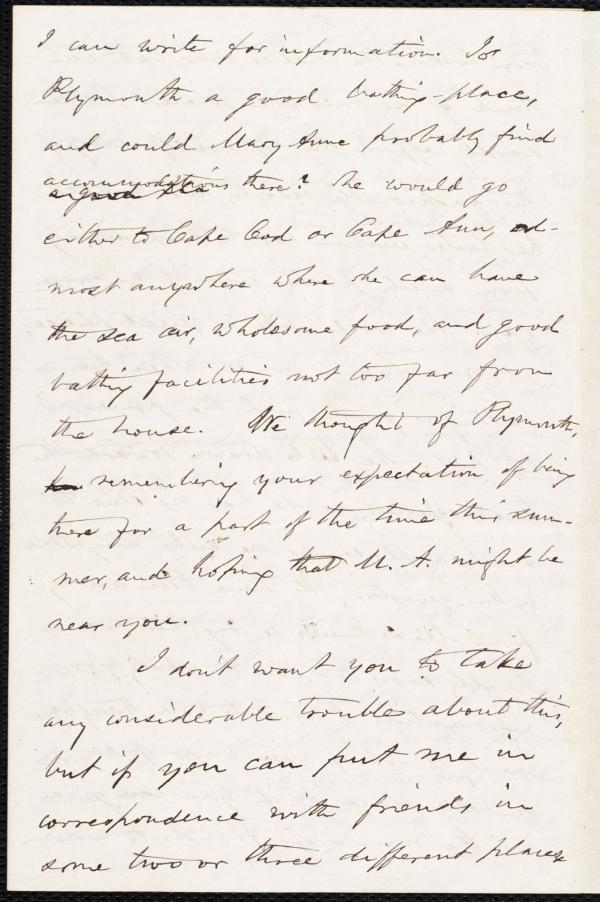 I can write for information. Is
Plymouth a good bathing-place,
and could Mary Anne probably find
accommodations there? She would go
either to Cape Cod or Cape Ann, al-
most anywhere where she can have
the sea air, wholesome food, and good
bathing facilities not too far from
the house. We thought of Plymouth,
remembering your expectation of being
there for a part of the time this sum-
mer, and hoping that M. A. might be
near you.
I don't want you to take
any considerable trouble about this,
but if you can put me in
correspondence with friends in
some two or three different places